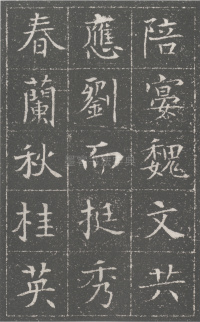 陪宴魏文共
應劉而挺秀
春蘭秋桂英